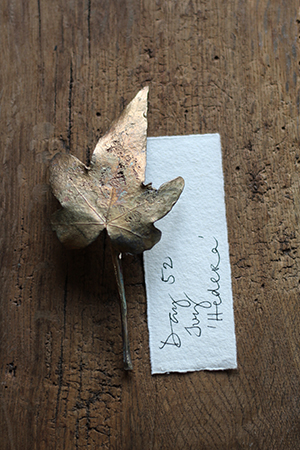 Day 52
Ivy
'Hedera'